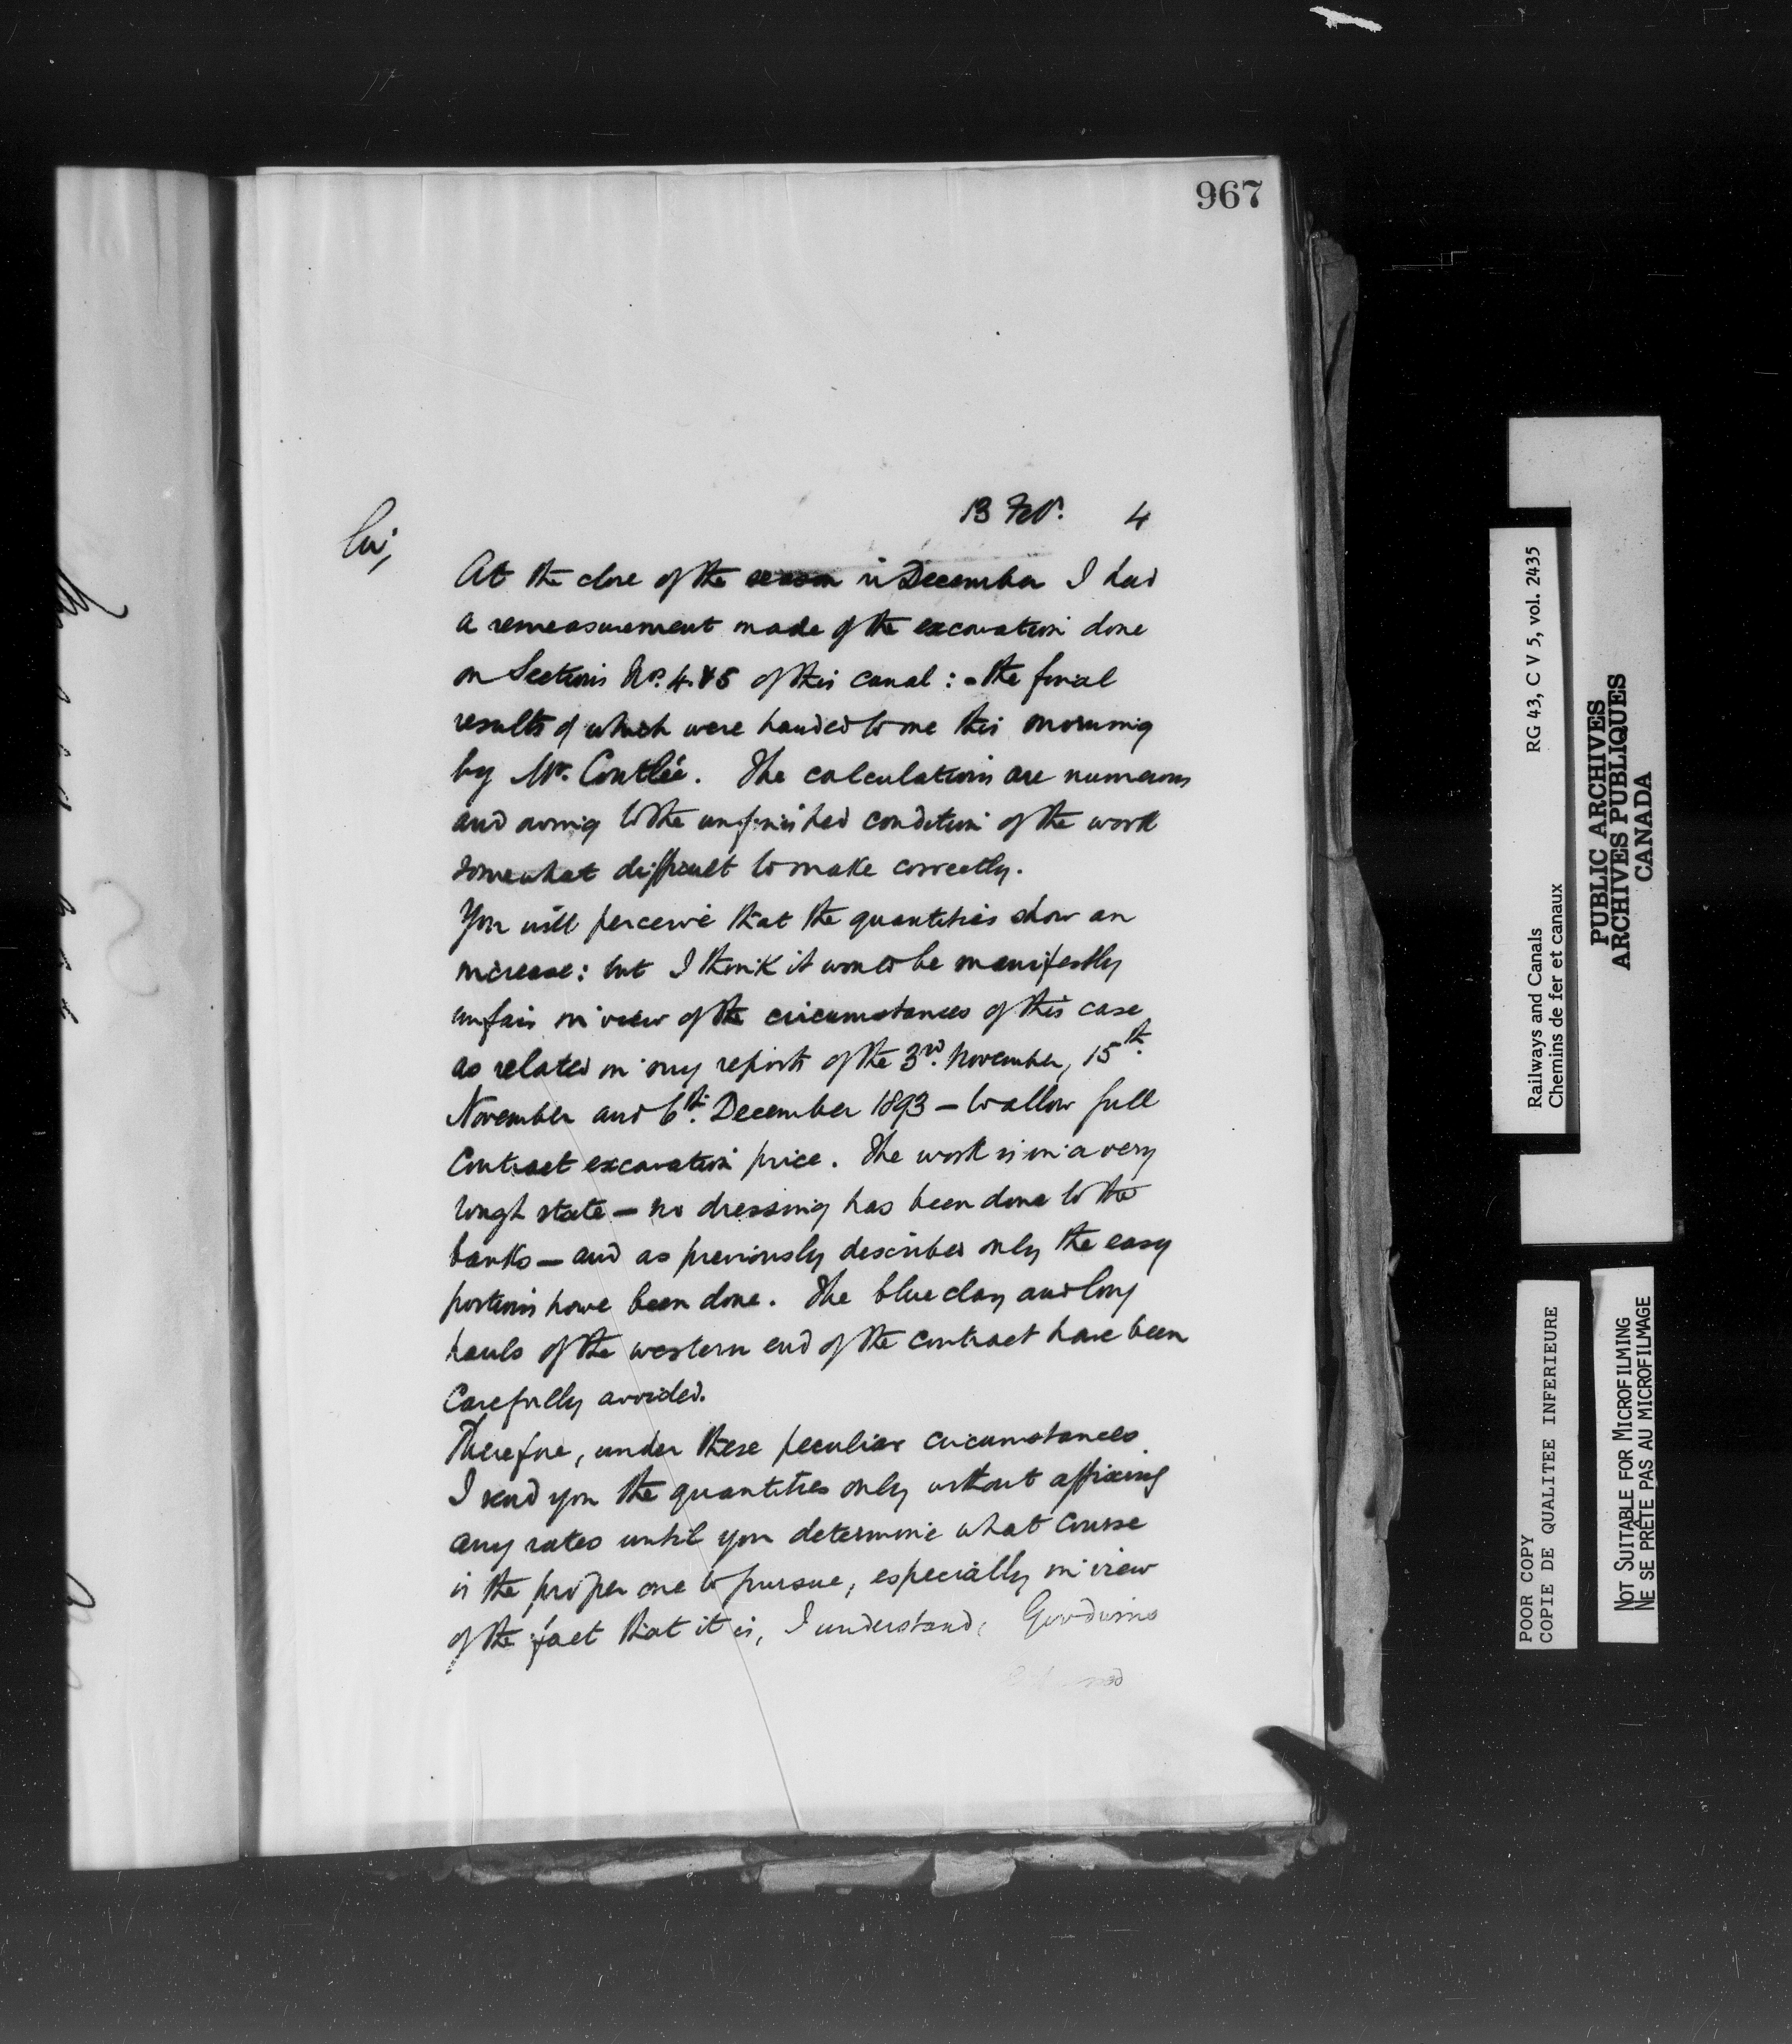 967
13 Feb. 4
Sir,
At the close of the season in December I had
a remeasurement made of the excavation done
on Sections No. 4 & 5 of this canal : - the final
results of which were handed to me this morning
by Mr. Coutlée. The calculations are numerous
and owing to the unfinished condition of the work
somewhat difficult to make correctly.
You will perceive that the quantities show an
increase : but I think it would be manifestly
unfair in view of the circumstances of this case
as related in my reports of the 3rd. November, 15th.
November and 6th. December 1893 — to allow full
Contract excavation price. The work is in a very
rough state — no dressing has been done to the
banks — and as previously described only the easy
portions have been done. The blue clay and long
hauls of the western end of the contract have been
Carefully avoided.
Therefore, under these peculiar circumstances
I send you the quantities only without affixing
any rates until you determine what course
is the proper one to pursue, especially in view
of the fact that it is, I understand, Goodwins
RG 43, C V 5, vol. 2435
Railways and Canals
Chemins de fer et canaux
PUBLIC ARCHIVES
ARCHIVES PUBLIQUES
CANADA
POOR COPY
COPIE DE QUALITEE INFERIEURE
NOT SUITABLE FOR MICROFILMING
NE SE PRÊTE PAS AU MICROFILMAGE